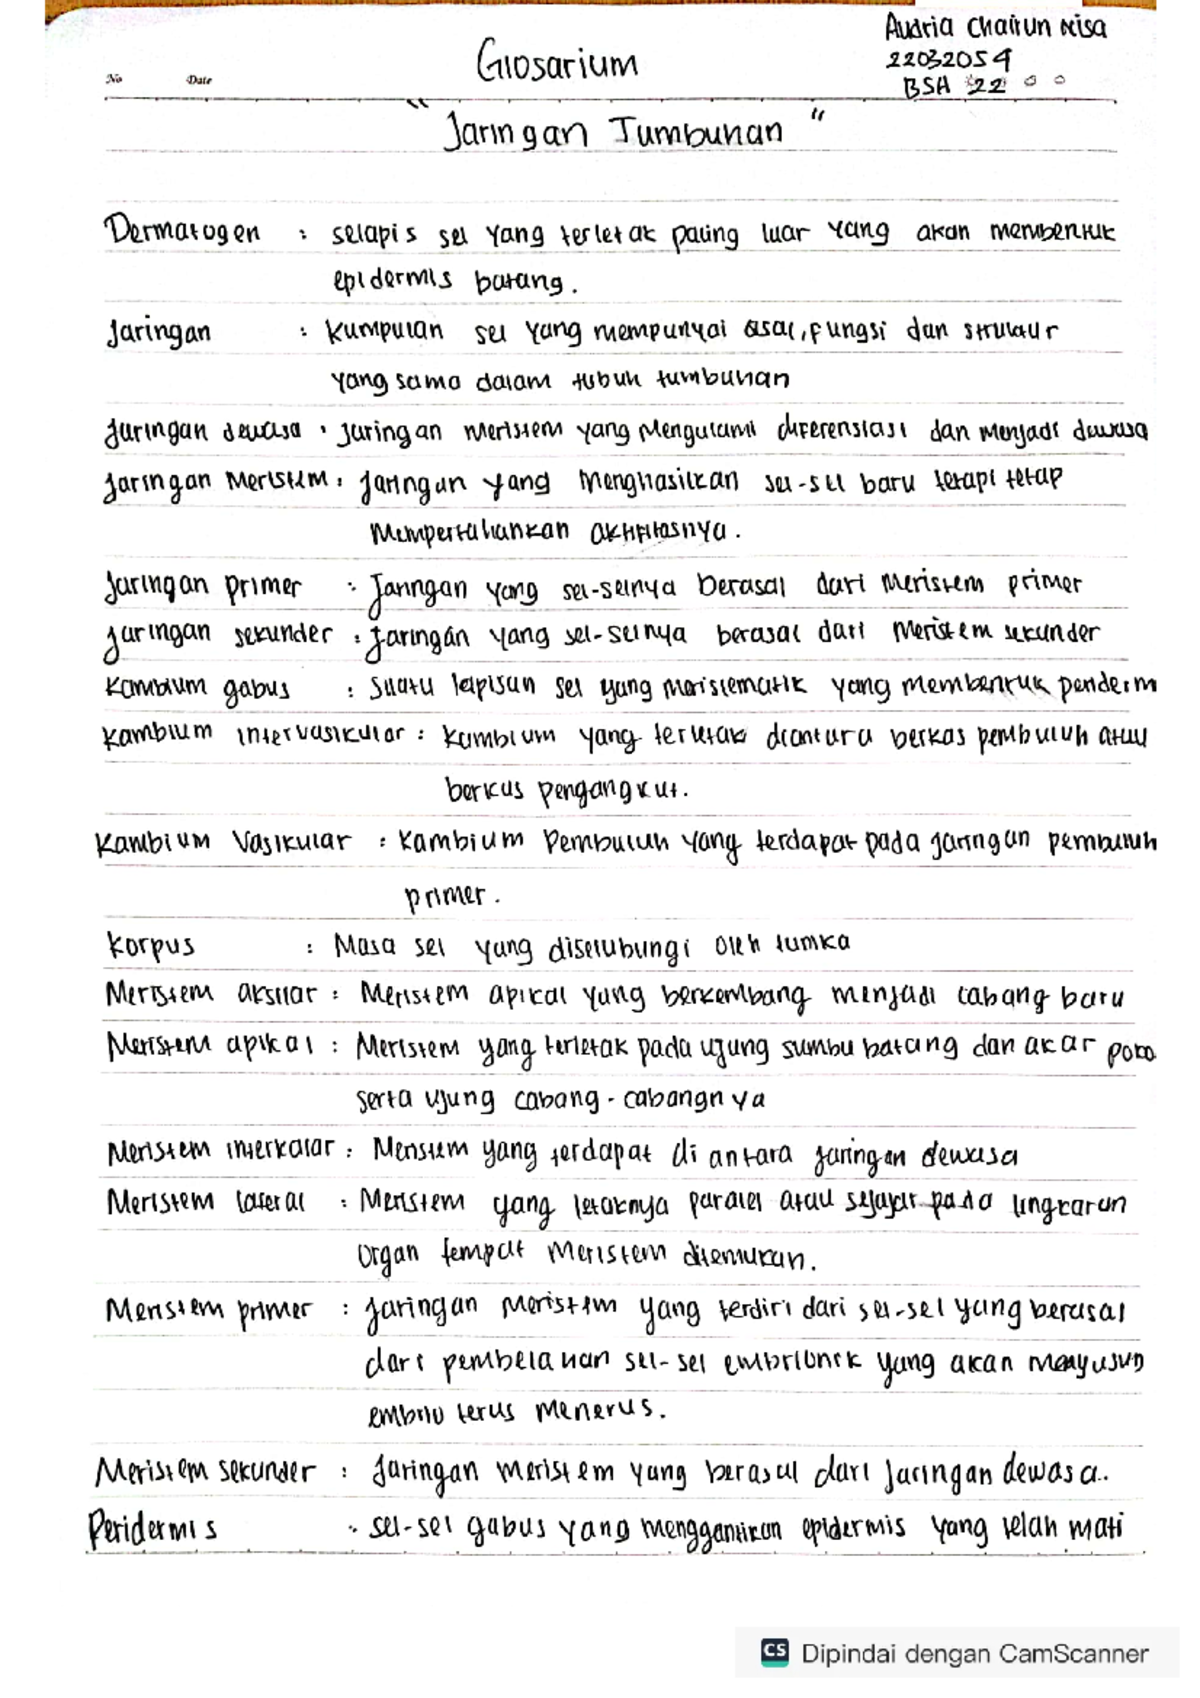 Audria Chairun Nisa
Glosarium
22032054
No Date
BSH '22
"Jaringan Tumbuhan"
Dermatogen : selapis sel yang terletak paling luar yang akan membentuk
epidermis batang.
Jaringan : Kumpulan sel yang mempunyai asal, fungsi dan struktur
yang sama dalam tubuh tumbuhan
Jaringan dewasa : Jaringan meristem yang mengalami diferensiasi dan menjadi dewasa
Jaringan Meristem : Jaringan yang menghasilkan sel-sel baru tetapi tetap
mempertahankan aktifitasnya.
Jaringan primer : Jaringan yang sel-selnya berasal dari meristem primer
Jaringan sekunder : Jaringan yang sel-selnya berasal dari meristem sekunder
Kambium gabus : Suatu lapisan sel yang meristematik yang membentuk periderm
Kambium intervasikular : Kambium yang terletak diantara berkas pembuluh atau
berkas pengangkut.
Kambium Vasikular : Kambium Pembuluh yang terdapat pada jaringan pembuluh
primer.
Korpus : Masa sel yang diselubungi oleh tunika
Meristem aksilar : Meristem apikal yang berkembang menjadi cabang baru
Meristem apikal : Meristem yang terletak pada ujung sumbu batang dan akar poko
serta ujung cabang-cabangnya
Meristem interkalar : Meristem yang terdapat di antara jaringan dewasa
Meristem lateral : Meristem yang letaknya paralel atau sejajar pada lingkaran
organ tempat meristem ditemukan.
Meristem primer : Jaringan meristem yang terdiri dari sel-sel yang berasal
dari pembelahan sel-sel embrionik yang akan menyusun
embrio terus menerus.
Meristem sekunder : Jaringan meristem yang berasal dari jaringan dewasa.
Peridermis : sel-sel gabus yang menggantikan epidermis yang telah mati
CS Dipindai dengan CamScanner